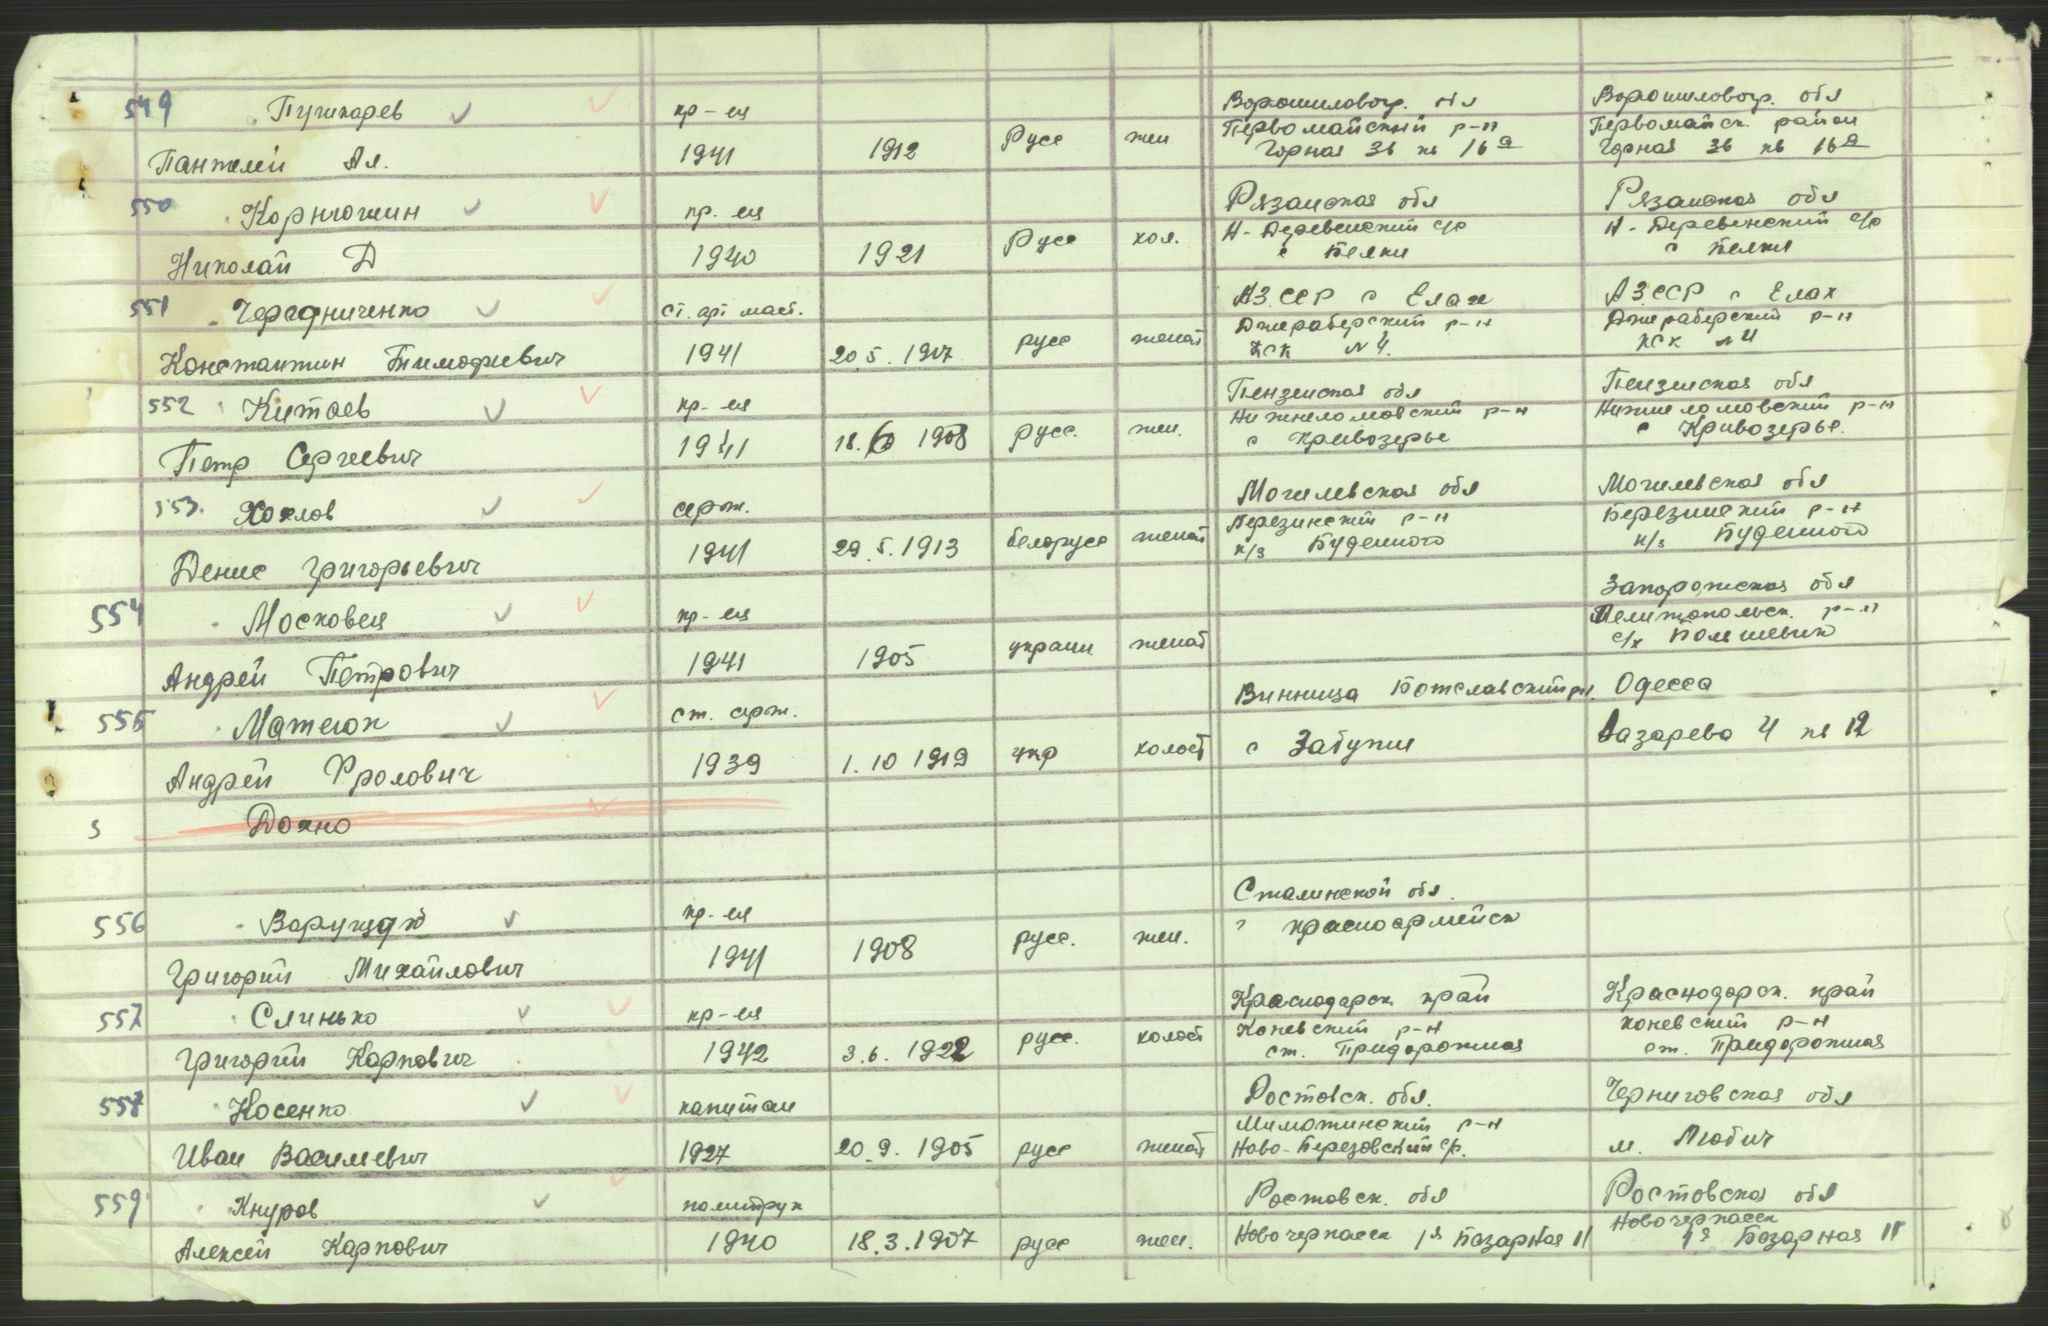 549 Пушкарев кр-ец Ворошиловогр. обл Ворошиловогр. обл
Пантелей Ал. 1941 1912 Русс жен Первомайский р-н Первомайск. район
Горная 36 кв 16а Горная 36 кв 16а
550 Корнюшин кр. ец Рязанская обл Рязанская обл
Николай Д 1940 1921 Русс хол. Н-Деревенский с/с Н-Деревенский с/с
с Белки с Белки
551 Чередниченко ст. арт маст. АЗ.ССР с Елах АЗ.ССР с Елах
Константин Тимофиевич 1941 20.5.1907 русс женат Джераберский р-н Джераберский р-н
КСК N 4. КСК N 4
552 Китаев кр-ец Пензенская обл Пензенская обл
Петр Сергеевич 1941 18. 1908 русс. жен. Нижнеломовский р-н Нижнеломовский р-н
с Кривозерье с Кривозерье.
553. Хохлов серж. Могилевская обл Могилевская обл
Денис Григорьевич 1941 29.5.1913 белорусс женат Березинский р-н Березинский р-н
к/з Буденного к/з Буденного
554 Московец кр-ец Запорожская обл
Андрей Петрович 1941 1905 украин женат Мелитопольск. р-н
с/х Большевик
555 Матеюк ст. серж. Винница р-н. Одесса
Андрей Фролович 1939 1.10 1919 укр холост с Забужье Лазарева 4 кв 12
Дохно
556 кр-ец Сталинской обл.
Григорий Михайлович 1941 1908 русс. жен. г Красноармейск
557 Слинько кр-ец Краснодарск край Краснодарск. край
Григорий Карпович 1942 3.6.1922 русс. холост Каневский р-н каневский р-н
ст. Придорожная ст. Придорожная
558 Косенко капитан Ростовск. обл. Черниговская обл
Иван Василиевич 1927 20.9.1905 русс женат р-н м. Любич
Ново-Березовский с/с.
559 Кнуров политрук Ростовск. обл Ростовская обл
Алексей Карпович 1940 18.3.1907 русс жен. Новочеркасск 1я Базарная 11 Новочеркасск
1я Базарная 11